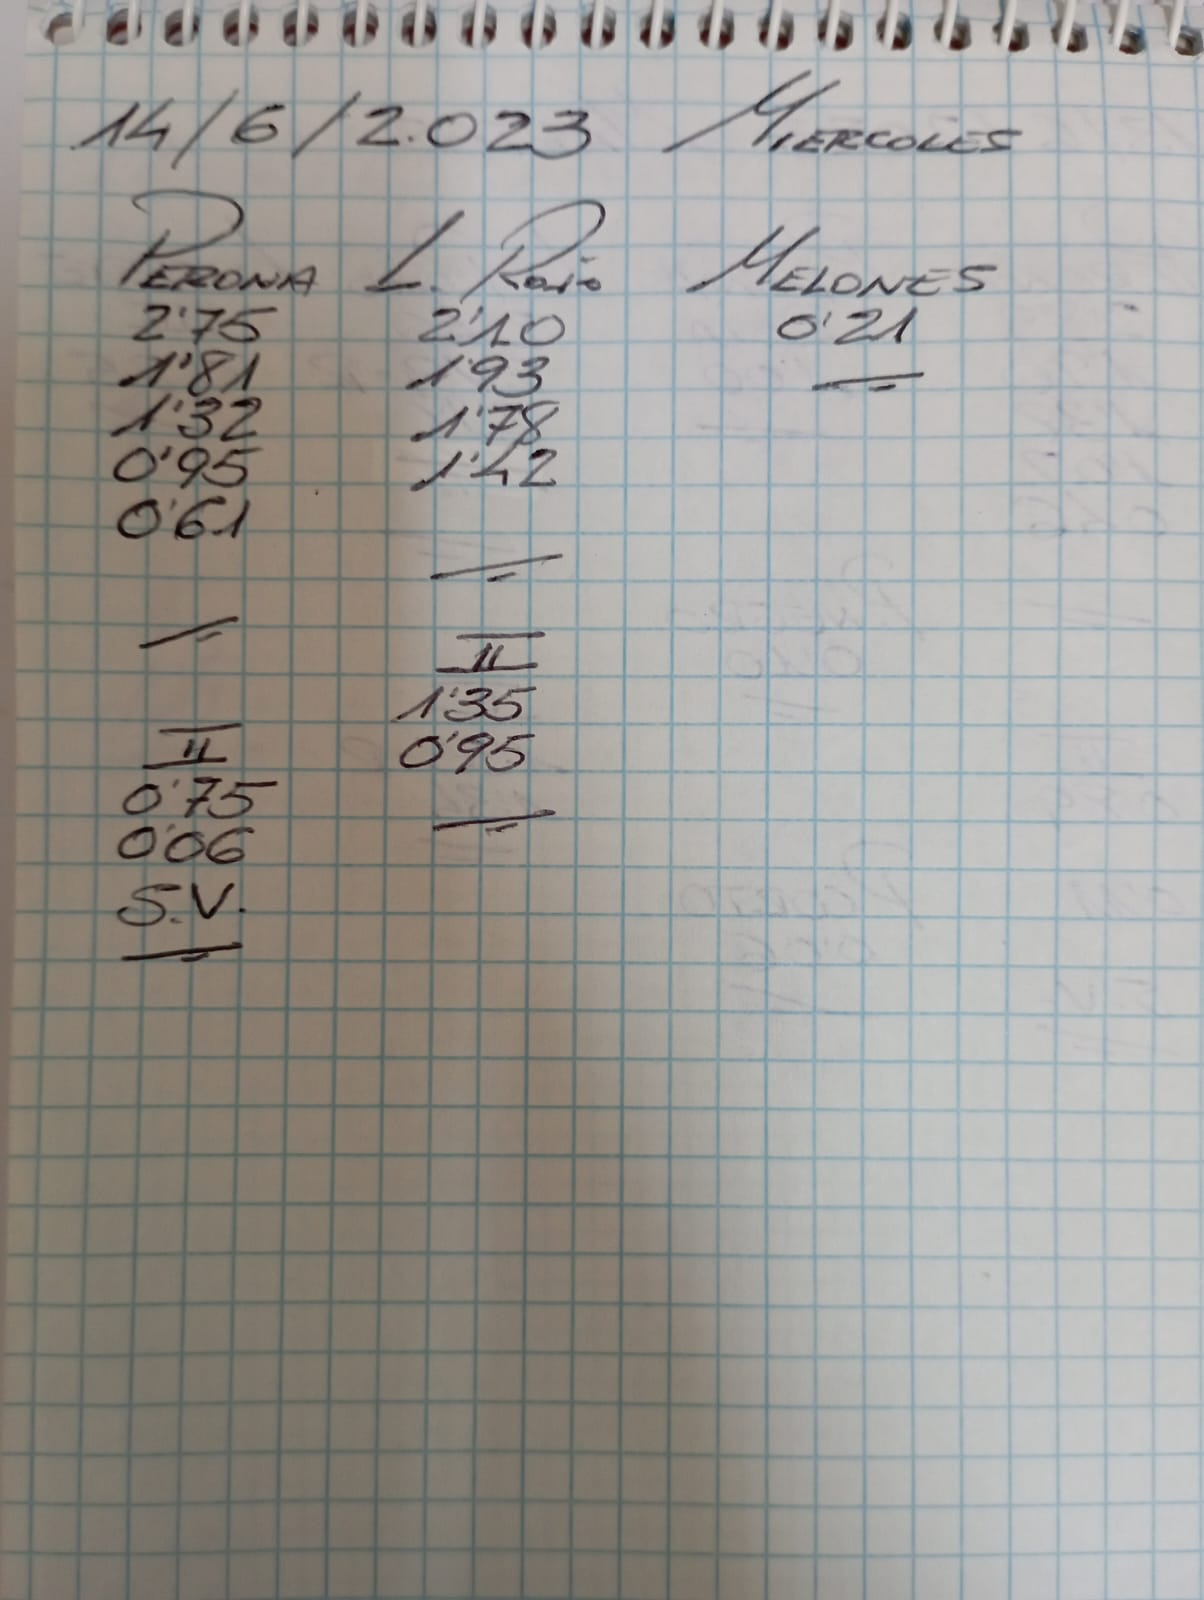 14/6/2.023 MIERCOLES
PERONA L. ROJO MELONES
2'75 2'10 0'21
1'81 1'93
1'32 1'78
0'95 1'42
0'61
II
1'35
0'95
II
0'75
0'06
S.V.